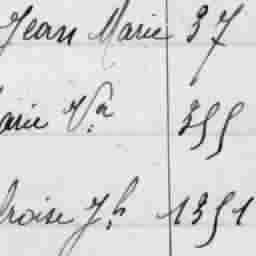 Jean Marie 37
arie Vᵉ 355
broise Jʰ 1351